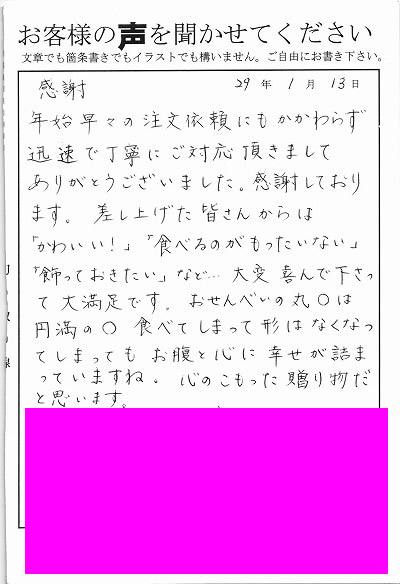 お客様の声を聞かせてください
文章でも箇条書きでもイラストでも構いません。ご自由にお書き下さい。
感謝
29年1月13日
年始早々の注文依頼にもかかわらず
迅速で丁寧にご対応頂きまして
ありがとうございました。感謝しており
ます。差し上げた皆さんからは
「かわいい!」「食べるのがもったいない」
「飾っておきたい」など…大変喜んで下さっ
て大満足です。おせんべいの丸〇は
円満の〇 食べてしまって形はなくなっ
てしまっても お腹と心に幸せが詰ま
っていますね。心のこもった贈り物だ
と思います。